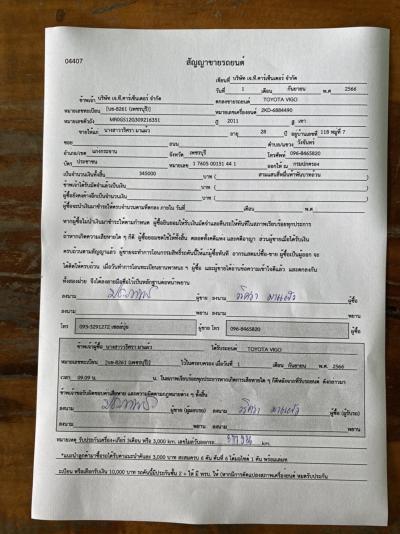 04407
สัญญาขายรถยนต์
เขียนที่ บริษัท เจ.ที.คาร์เซ็นเตอร์ จำกัด
วันที่ 1 เดือน กันยายน พ.ศ 2566
ข้าพเจ้า บริษัท เจ.ที.คาร์เซ็นเตอร์ จำกัด ตกลงขายรถยนต์ TOYOTA VIGO
หมายเลขทะเบียน [บธ-8261 (เพชรบุรี)] หมายเลขเครื่องยนต์ 2KD-6884490
หมายเลขตัวถัง MR0GS12G309216351 ปี 2011 สี เทา
ขายให้แก่ นางสาววริศรา มานเผ้ว อายุ 28 ปี อยู่บ้านเลขที่ 118 หมู่ที่ 7
ซอย ถนน ตำบล/แขวง วังจันทร์
อำเภอ/เขต แก่งกระจาน จังหวัด เพชรบุรี โทรศัพท์ 096-8465820
บัตร ประชาชน หมายเลข 1 7605 00151 44 1 ออกให้ ณ กรมปกครอง
เป็นจำนวนเงินทั้งสิ้น 345000 บาท ( สามแสนสี่หมื่นห้าพันบาทถ้วน )
ข้าพเจ้าได้รับมัดจำแล้วเป็นเงิน บาท ( )
ผู้ซื้อยังคงค้างอีกเป็นจำนวนเงิน บาท ( )
ผู้ซื้อจะนำเงินมาชำระให้ครบจำนวนตามที่ตกลง ภายใน วันที่ เดือน พ.ศ
หากผู้ซื้อไม่นำเงินมาชำระให้ตามกำหนด ผู้ซื้อยินยอมให้ริบเงินมัดจำและคืนรถให้ทันทีในสภาพเรียบร้อยทุกประการ
ถ้าหากเกิดความเสียหายใด ๆ ก็ดี ผู้ซื้อยอมชดใช้ให้ทั้งสิ้น ตลอดทั้งคดีแพ่ง และคดีอาญา ส่วนผู้ขายเมื่อได้รับเงิน
ครบถ้วนตามสัญญาแล้ว ผู้ขายจะทำการโอนกรรมสิทธิ์รถคันนี้ให้แก่ผู้ซื้อทันที
ทั้งสองฝ่าย จึงได้ลงลายมือชื่อไว้เป็นหลักฐานต่อหน้าพยาน
ลงนาม ผู้ขาย ลงนาม วริศรา มานเผ้ว ผู้ซื้อ
ลงนาม พยาน ลงนาม พยาน
โทร 093-3291272 ผู้ขาย โทร 096-8465820 ผู้ซื้อ
ข้าพเจ้าผู้ซื้อ นางสาววริศรา มานเผ้ว ได้รับรถยนต์ TOYOTA VIGO
หมายเลขทะเบียน [บธ-8261 (เพชรบุรี)] ไว้ในครอบครอง เมื่อวันที่ 1 เดือน กันยายน พ.ศ 2566
เวลา 09.09 น.
ลงนาม ผู้ขาย (ผู้มอบรถ) ลงนาม วริศรา มานเผ้ว ผู้ซื้อ (ผู้รับรถ)
ลงนาม พยาน ลงนาม พยาน
หมายเหตุ รับประกันเครื่อง+เกียร์ 3เดือน หรือ 3,000 km. km.